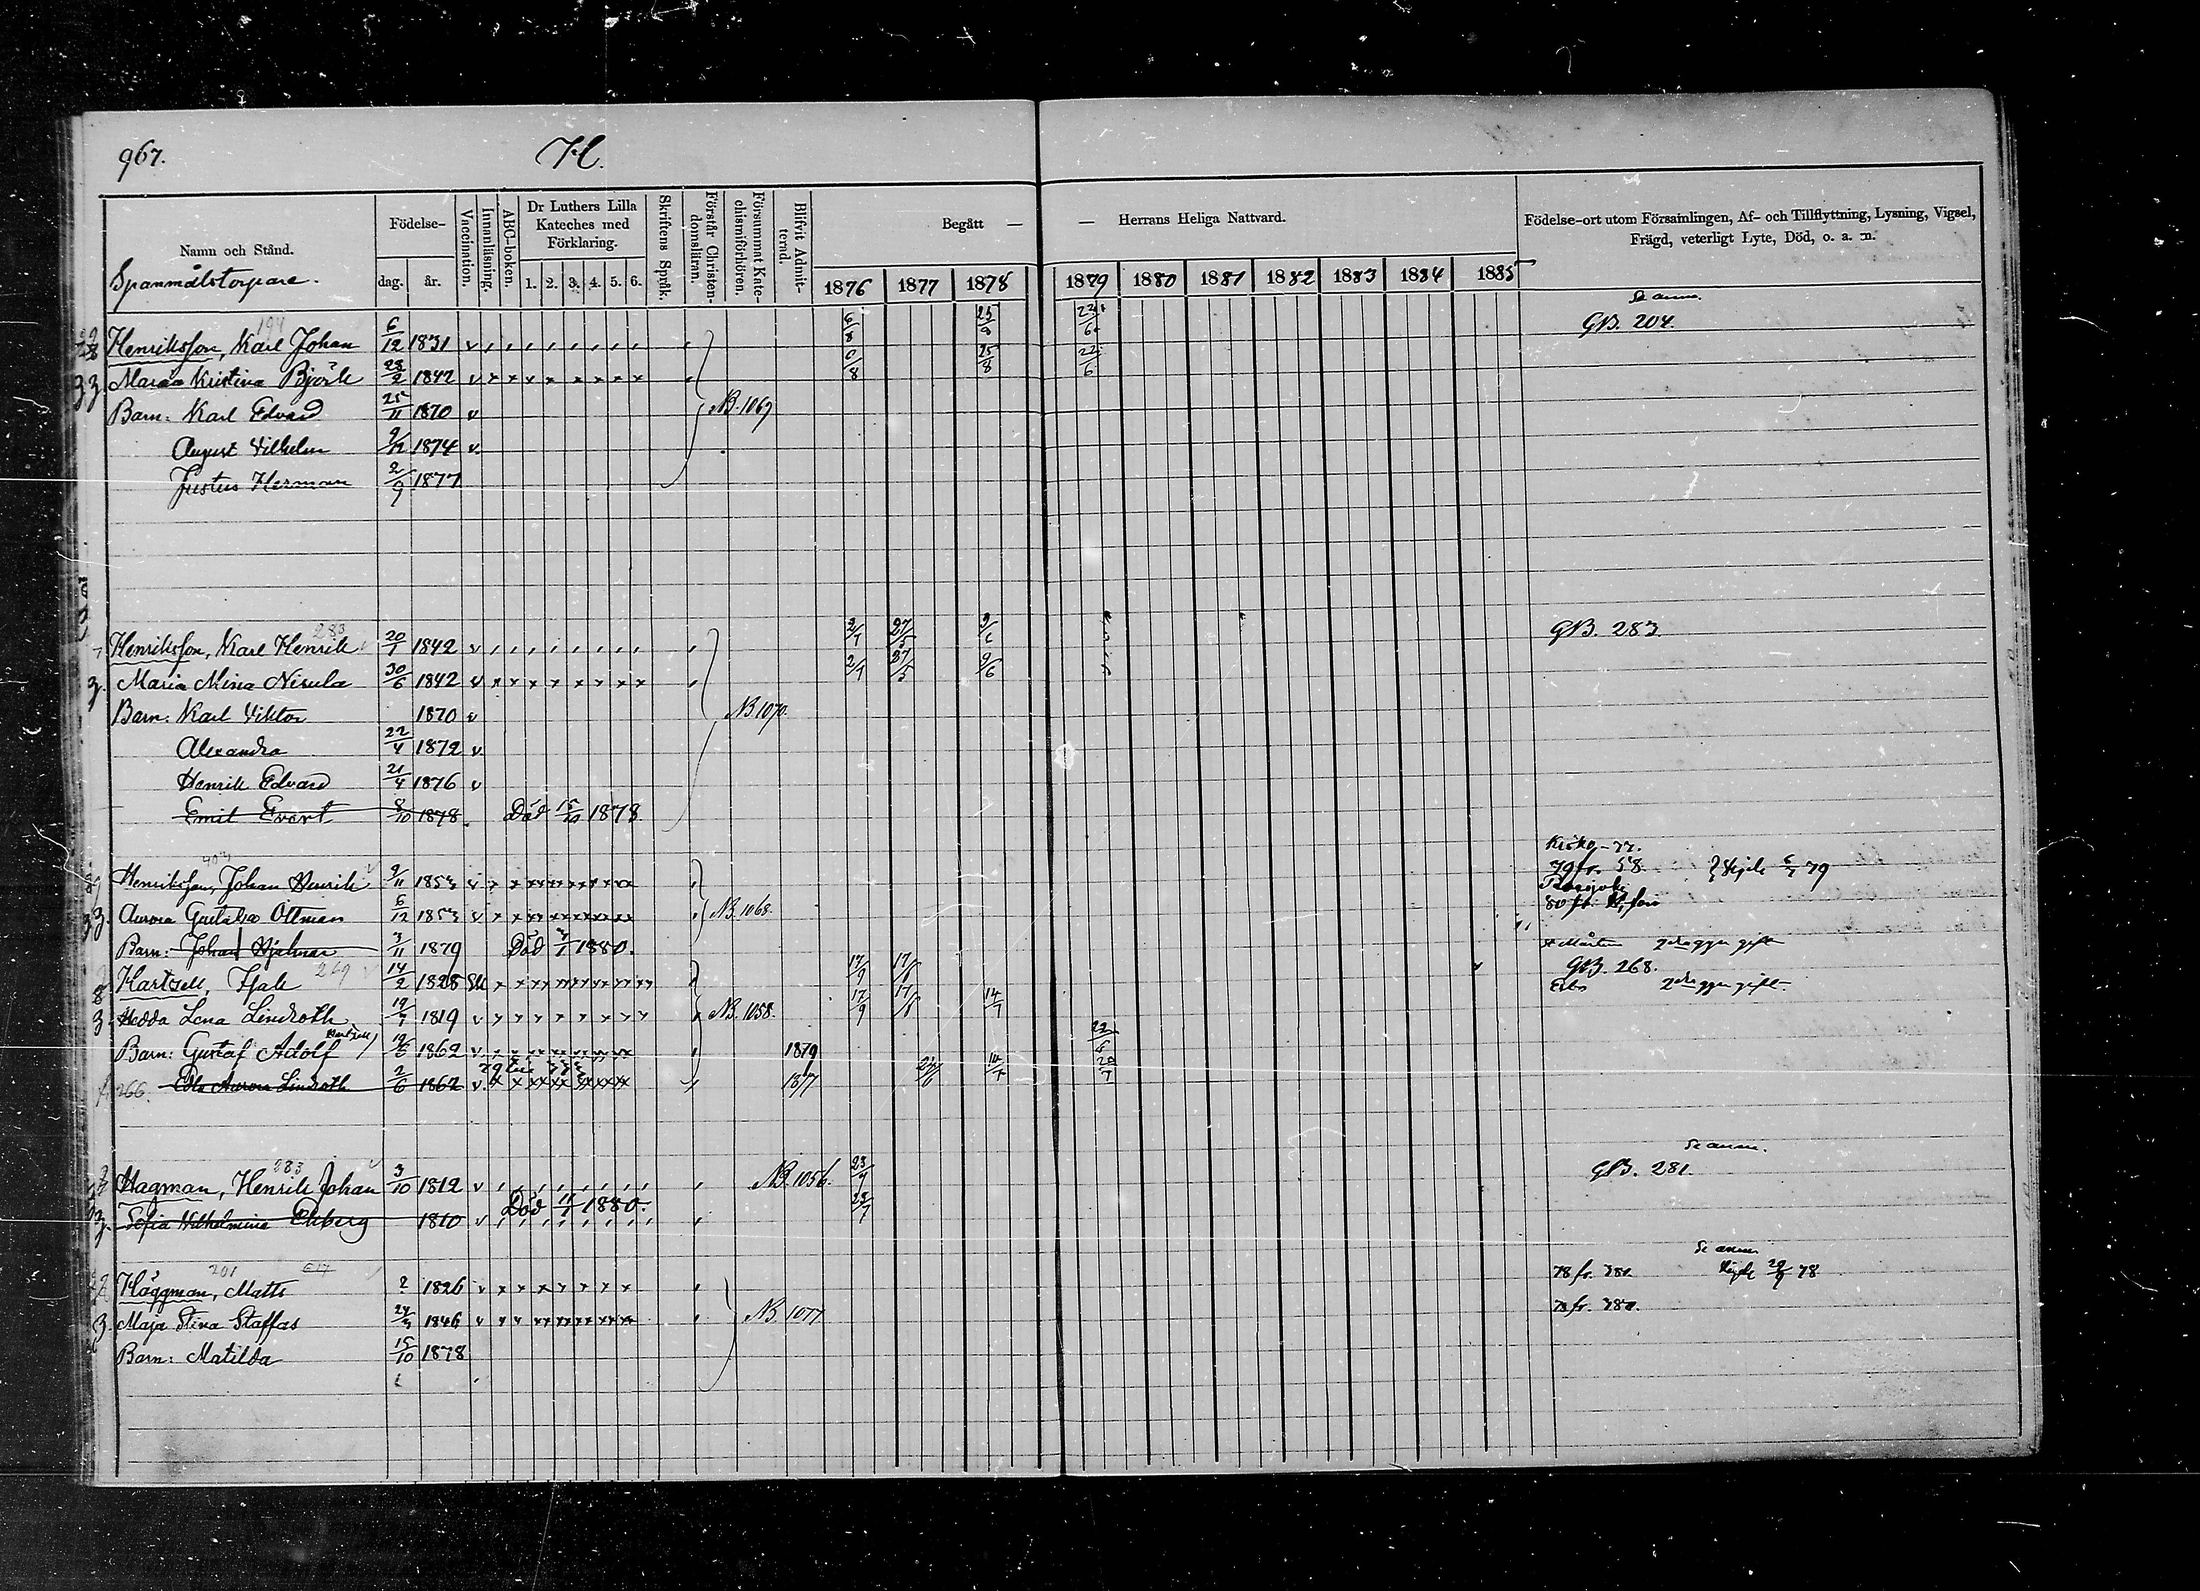 967. H.
Namn och Stånd.
Spanmålstorpare.
Födelse-
dag. år.
Vaccination.
Innanläsning.
ABC-boken.
Dr Luthers Lilla
Kateches med
Förklaring.
1. 2. 3. 4. 5. 6.
Skriftens Språk.
Förstår Christen-
domsläran.
Försummat Kate-
chismiförhören.
Blifvit Admit-
terad.
Begått — — Herrans Heliga Nattvard.
1876 1877 1878 1879 1880 1881 1882 1883 1884 1885
Födelse-ort utom Församlingen, Af- och Tillflyttning, Lysning, Vigsel,
Frägd, veterligt Lyte, Död, o. a. m.
194
Henriksson, Karl Johan 6/12 1831 v 6/8 25/8 22/6 GB. 204.
Maria Kristina Björk 23/2 1842 v 6/8 25/8 22/6
Barn: Karl Edvard 25/11 1870 v NB. 1069
August Vilhelm 9/12 1874 v
Justus Herman 2/9 1877
283
Henriksson, Karl Henrik 20/1 1842 v 2/7 27/5 9/6 GB. 283
Maria Mina Nisula 30/6 1842 v 2/7 27/5 9/6
Barn: Karl Viktor 1870 v NB 1070.
Alexandra 22/4 1872 v
Henrik Edvard 21/4 1876 v
Emil Evert 8/10 1878. Död 15/10 1878
Kisko-77.
Henriksson, Johan Henrik 9/11 1853 v 79 fr. 58.
Aurora Gustafva Öttman 6/12 1853 v NB. 1068.
Barn: Johan Hjalmar 3/11 1879 Död 3/1 1880.
St Mårtens 2dra ggn gift
Hartzell, Isak 229 14/2 1828 17/9 17/6 GB. 268.
2dra ggn gift.
Hedda Lena Lindroth 19/7 1819 v NB. 1058. 17/9 17/6 14/7
Hartzell
Barn: Gustaf Adolf 19/6 1862 v 1879
266. Eda Aurora Lindroth 2/6 1862 v 1877 14/7 20/7
Se anm.
283
Hagman, Henrik Johan 3/10 1812 v NB. 1056. 23/7 GB. 281.
Sofia Vilhelmina Ekberg 1810 v Död 11/1 1880. 23/7
Se anm
201 617
Häggman, Matts 2 1826 v 78 fr. 380.
Maja Stina Staffas 1846 v NB 1077 78 fr. 380.
Barn: Matilda 15/10 1878